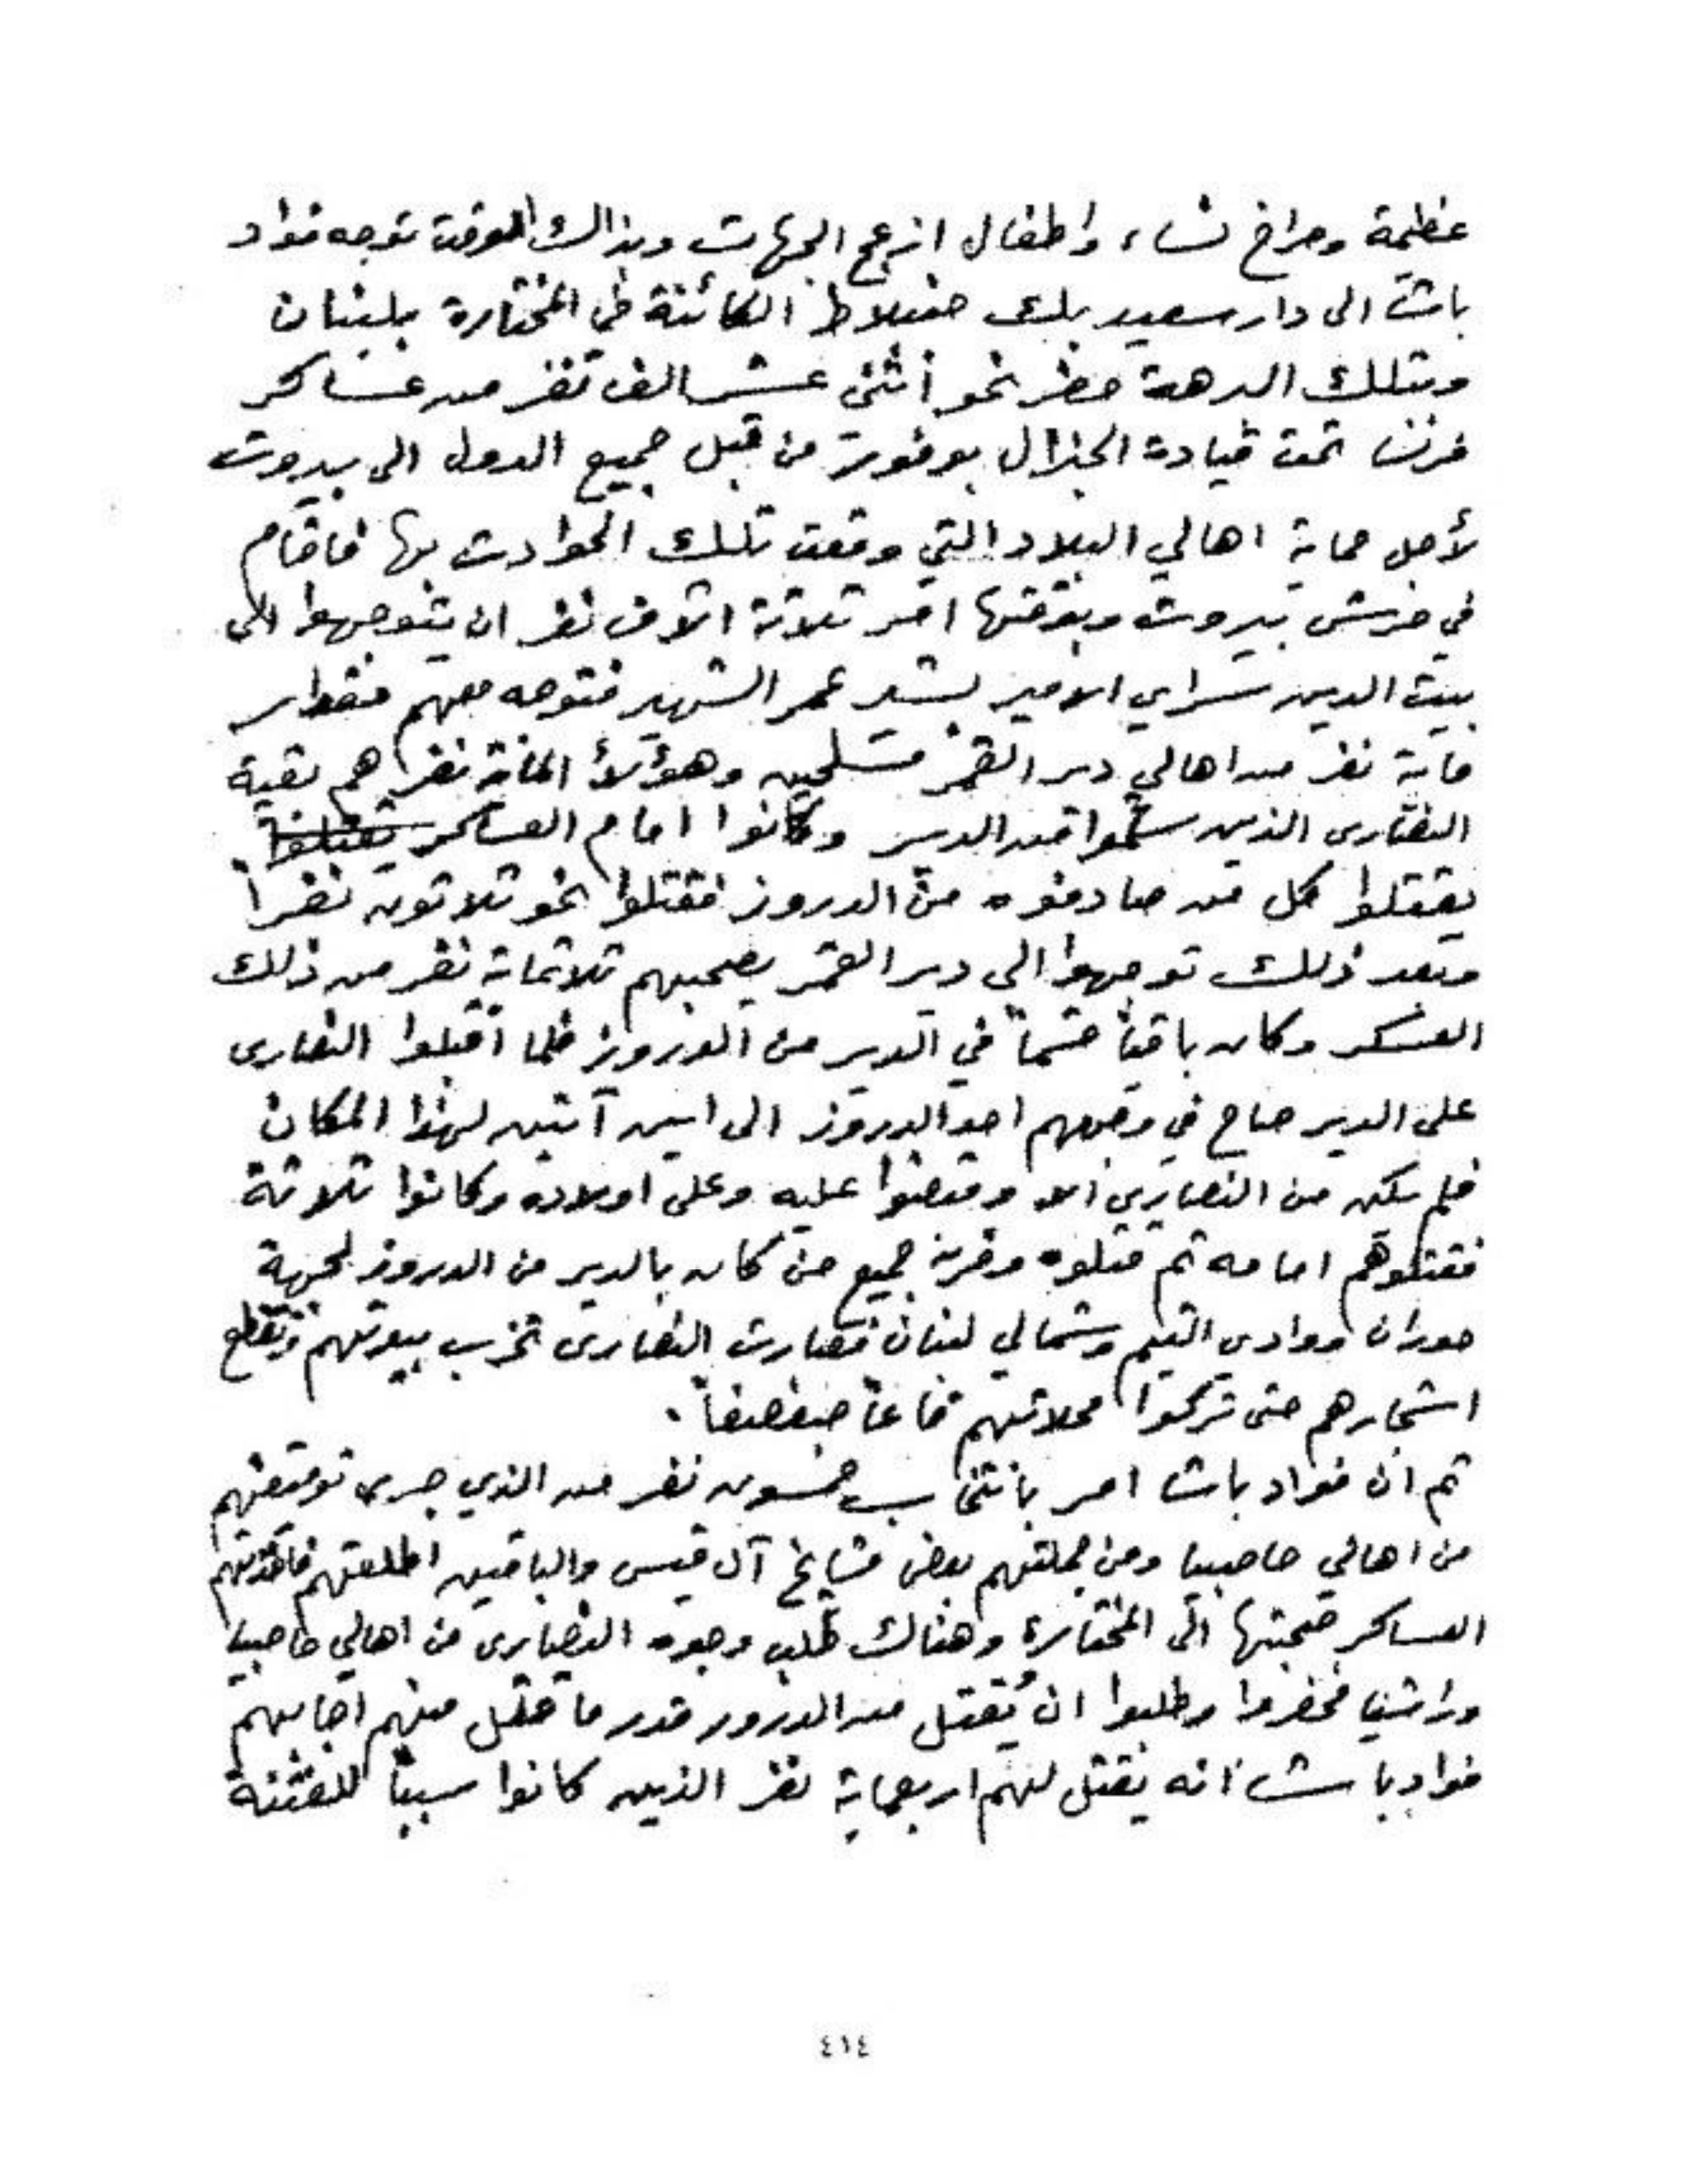 عظيمة وصراخ نساء واطفال ازعج الجهات وبذالك الوقت توجه فواد
باشا الى دار سعيد بك جنبلاط الكائنة في المختارة بلبنان
وبتلك البرهة حضر نحو أثنى عشر الف نفر من عساكر
فرنسا تحت قيادة الجنرال بوفورت من قبل جميع الدول الى بيروت
لأجل حماية اهالي البلاد التي وقعت تلك الحوادث بها فاقام
في حرش بيروت وبوقتها امر ثلاثة الآف نفر ان يتوجهوا الى
بيت الدين سراي الامير بشير عمر الشهير فتوجه معهم مقدار
ماية نفر من اهالي دير القمر مسلحين وهؤلأ المائة نفر هم بقية
النصارى الذين سلموا من الدير وكانوا امام العساكر يقتلوا
يقتلوا كل من صادفوه من الدروز فقتلوا نحو ثلاثون نفراً
وبعد ذلك توجهوا الى دير القمر يصحبهم ثلاثماية نفر من ذلك
العسكر وكان باقياً قسماً في الدير من الدروز فلما اقبلوا النصارى
على الدير صاح في وجههم احد الدروز الى اين آتين لهذا المكان
فلم يكن من النصارى الا وقبضوا عليه وعلى اولاده وكانوا ثلاثة
فقتلوهم امامه ثم قتلوه وفرت جميع من كان بالدير من الدروز لجهة
حوران ووادي التيم وشمالي لبنان فصارت النصارى تخرب بيوتهم وتقطع
اشجارهم حتى تركوا محلاتهم قاعاً صفصفاً .
ثم ان فواد باشا امر بانتخاب خمسون نفر من الذي جرى توقيفهم
من اهالي حاصبيا ومن جملتهم بعض مشايخ آل قيس والباقين اطلقهم فاخذتهم
العساكر صحبتها الى المختارة وهناك طلب وجوه النصارى من اهالي حاصبيا
وراشيا فحضروا وطلبوا ان يُقتل من الدروز قدر ما قتل منهم اجابهم
فواد باشا انه يقتل لهم اربعماية نفر الذين كانوا سبباً للفتنة
٤١٤